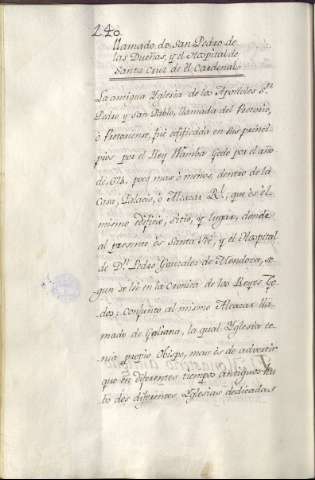 240
llamado de San Pedro de
las Dueñas, y el Hospital de
Santa Cruz de el Cardenal
La antigua Yglesia de los Apostoles Sn.
Pedro y San Pablo, llamada del Pretorio,
ò Pretoriense, fué edificada en sus princi-
pios por el Rey Wamba Godo por el año
de 674, poco mas ò menos, dentro de la
Casa, Palacio, ò Alcazar Rl., que es el
mismo edificio, sitio, y lugar, donde
al presente es Santa Fé, y el Hospital
de Dn. Pedro Gonzalez de Mendoza, se-
gun se lée en la Cronica de los Reyes Go-
dos; conjunto al mismo Alcazar lla-
mado de Galiana, la qual Yglesia te-
nia propio Obispo, mas es de advertir
que en diferentes tiempos antiguos hu-
bo dos diferentes Yglesias dedicadas